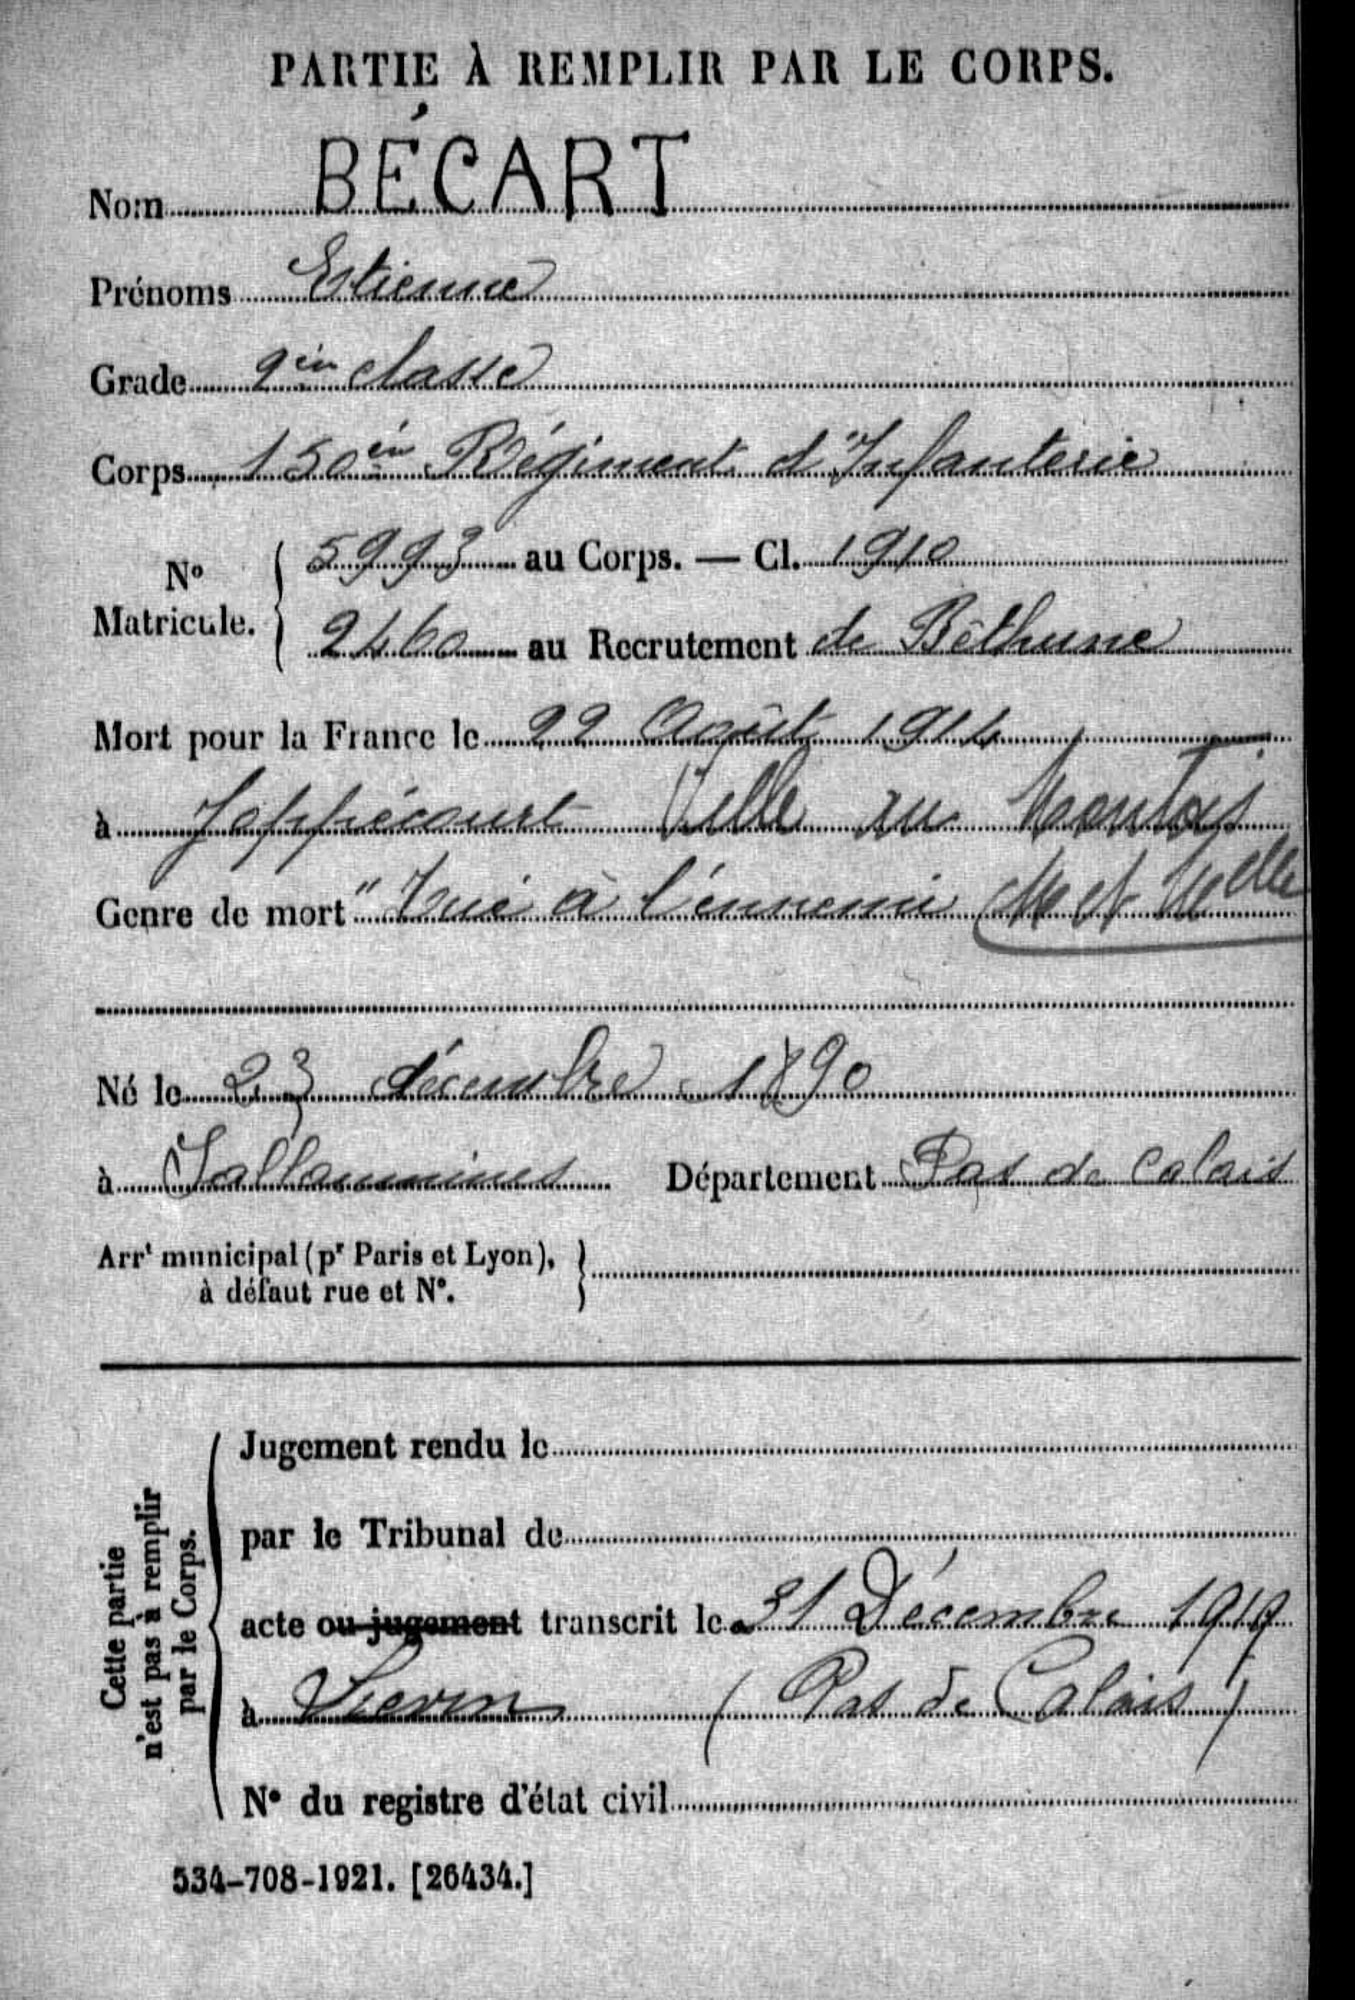 PARTIE À REMPLIR PAR LE CORPS.
Nom BÉCART
Prénoms Estienne
Grade 2èm classe
Corps 150èm Régiment d'Infanterie
No Matricule. 5993 au Corps. — Cl. 1910
2460 au Recrutement de Béthune
Mort pour la France le 22 Août 1914
à Joppécourt Ville au Montois
Genre de mort "Tué à l'ennemi M et Melle
Né le 23 décembre 1890
à Sallaumines Département Pas de Calais
Arrt municipal (pr Paris et Lyon),
à défaut rue et N°.
Cette partie
n'est pas à remplir
par le Corps.
Jugement rendu le
par le Tribunal de
acte ou jugement transcrit le 31 Décembre 1919
à Lievin (Pas de Calais)
N° du registre d'état civil
534-708-1921. [26434.]